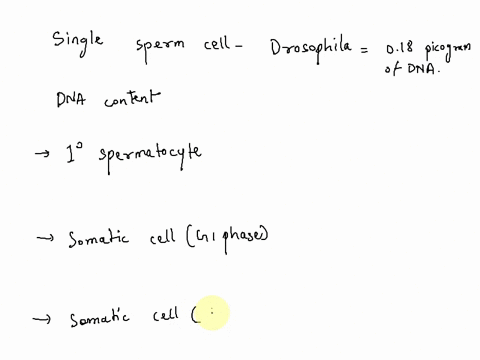 Single sperm cell - Drosophila = 0.18 picogram
of DNA.
DNA content
→ 1° spermatocyte
→ Somatic cell (G1 phase)
→ Somatic cell (